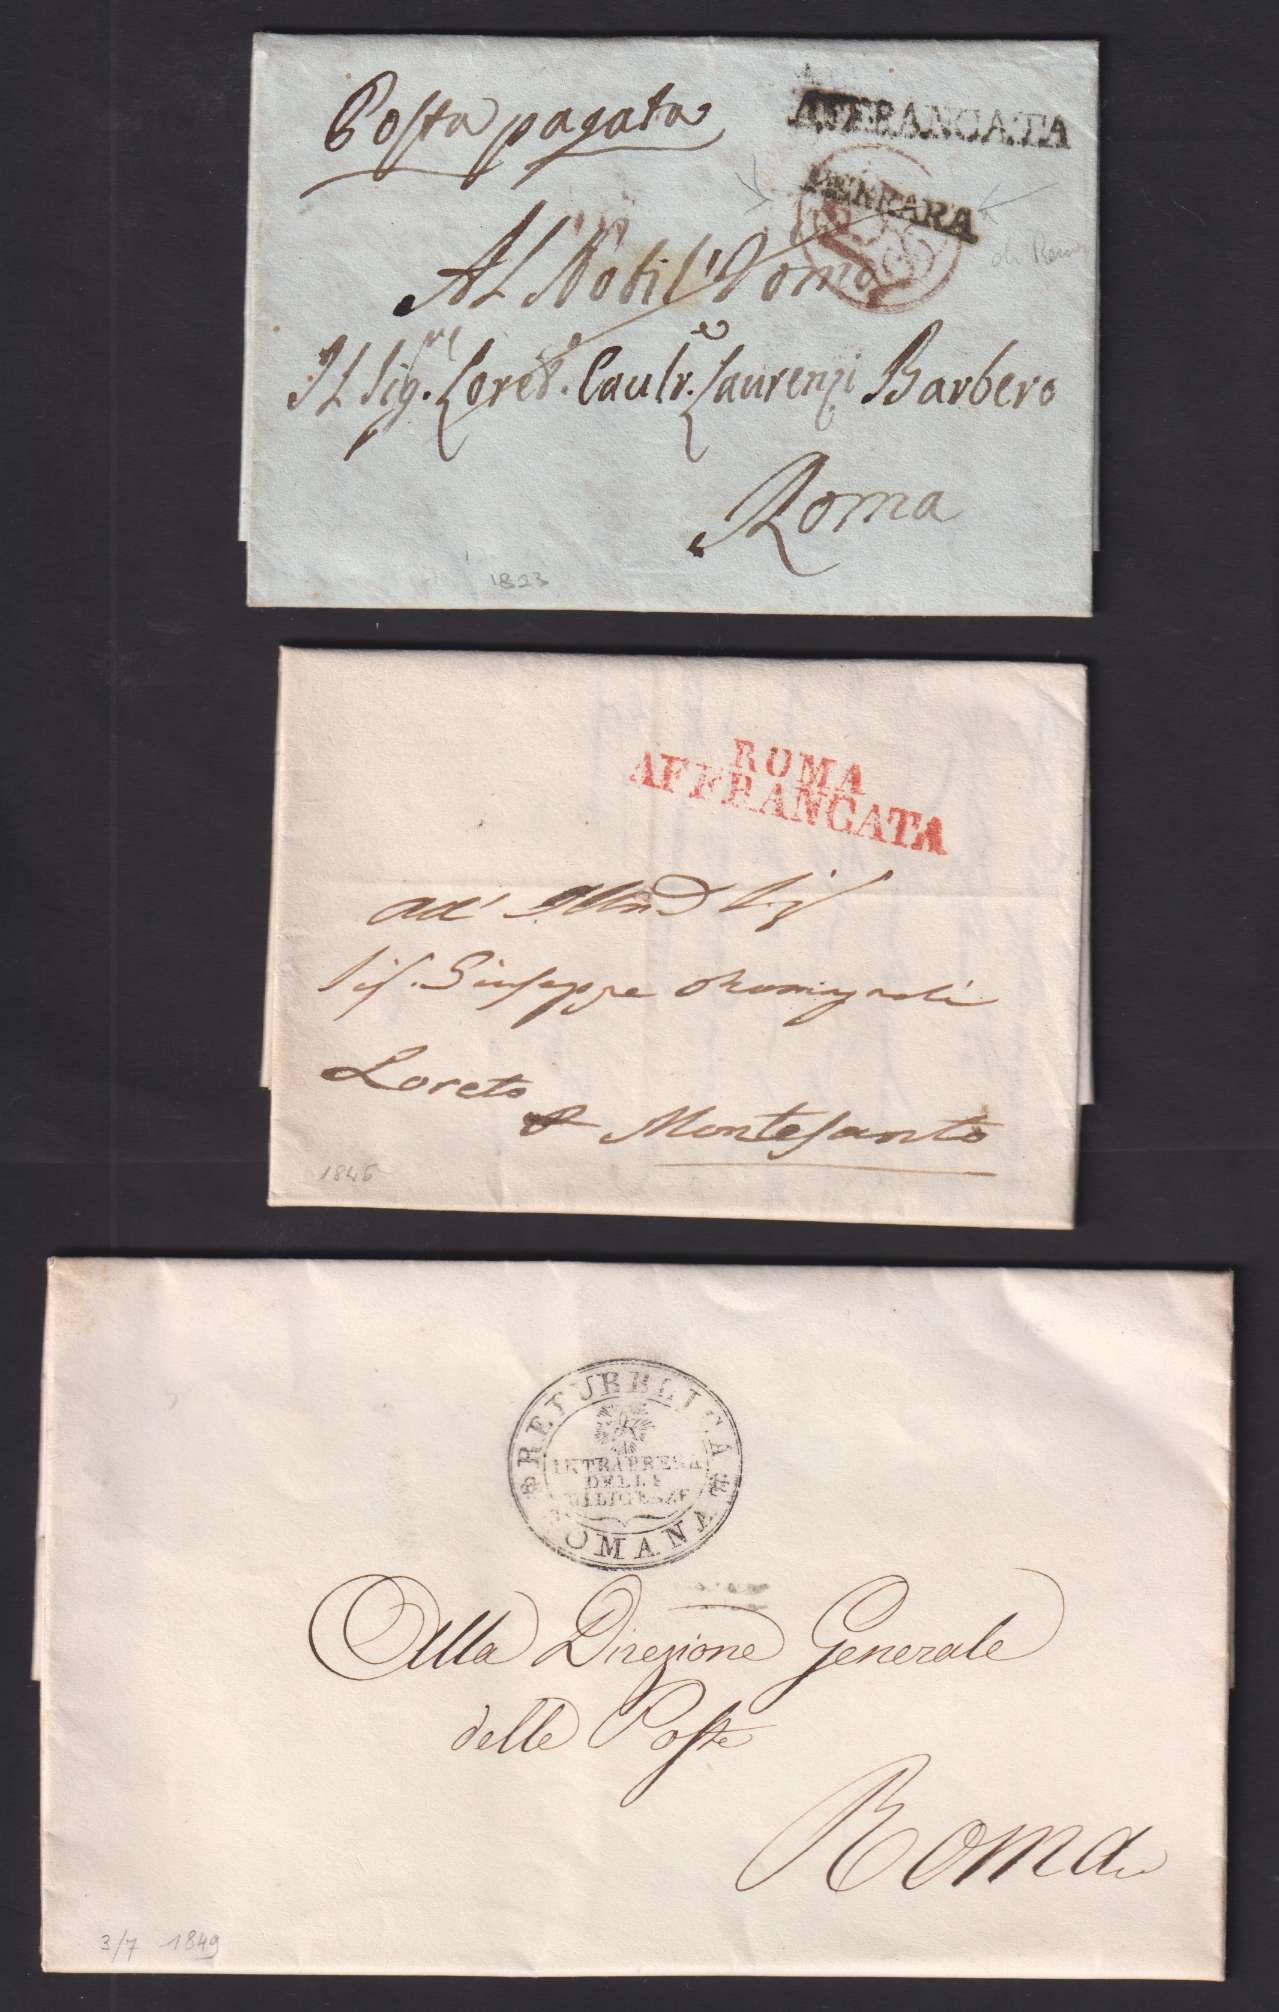 Posta pagata
AFFRANCATA
FERRARA
di Roma
Al Nobil' Uomo
Il Sig.re Loret. Cav.lr. Laurenzi Barbero
Roma
1823
ROMA
AFFRANCATA
Sig. Giuseppe
Loreto
Montesanto
1845
REPUBBLICA
INTRAPRESA
DELLE
DILIGENZE
ROMANA
Alla Direzione Generale
delle Poste
Roma
3/7 1849